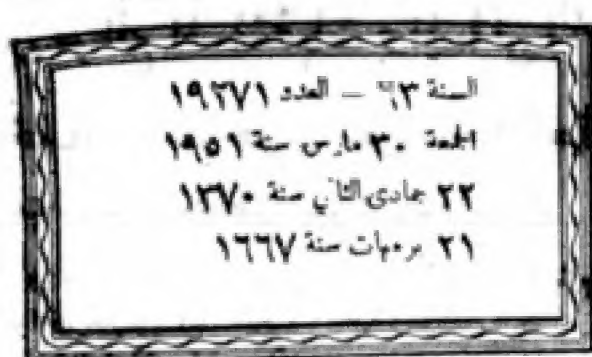 السنة ٦٣ – العدد ١٩٦٢٧١
الجمعة ٣٠ مارس سنة ١٩٥١
٢٢ جمادى الثانى سنة ١٣٧٠
٢١ برمهات سنة ١٦٦٧